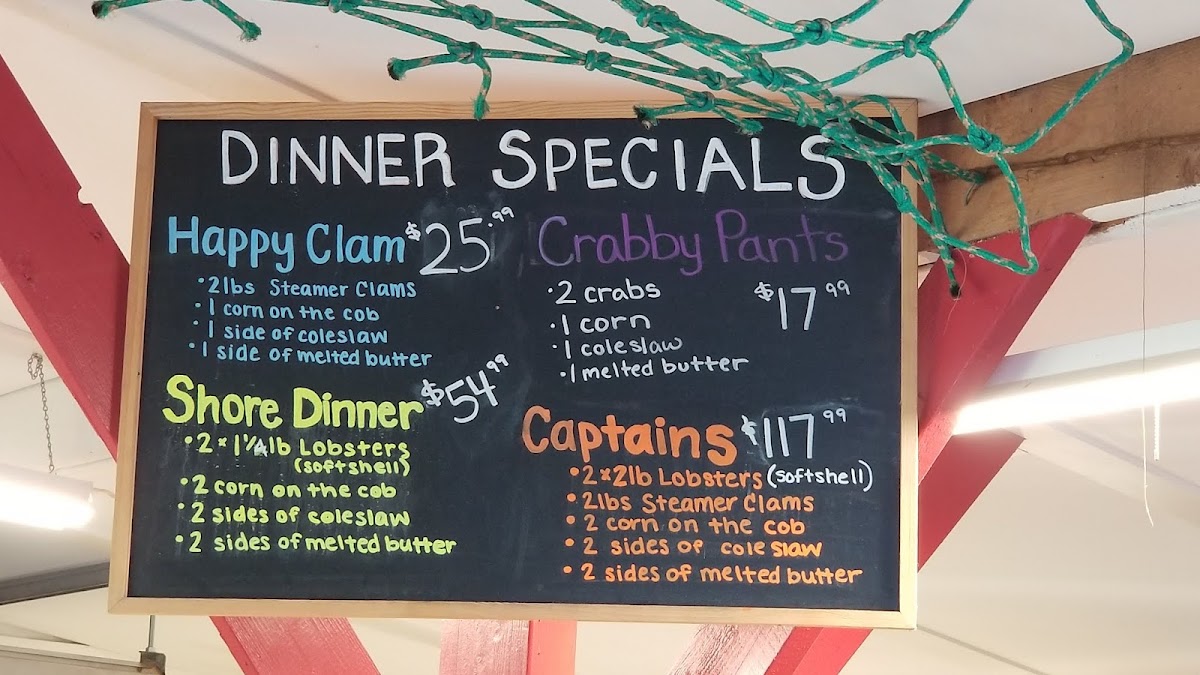 DINNER SPECIALS
Happy Clam $25.99
• 2lbs Steamer Clams
• 1 corn on the cob
• 1 side of coleslaw
• 1 side of melted butter
Crabby Pants
$17 99
• 2 crabs
• 1 corn
• 1 coleslaw
• 1 melted butter
Shore Dinner $54 99
• 2 x 1 1/4 lb Lobsters
(softshell)
• 2 corn on the cob
• 2 sides of coleslaw
• 2 sides of melted butter
Captains $117 99
• 2 x 2lb Lobsters (softshell)
• 2lbs Steamer Clams
• 2 corn on the cob
• 2 sides of cole slaw
• 2 sides of melted butter